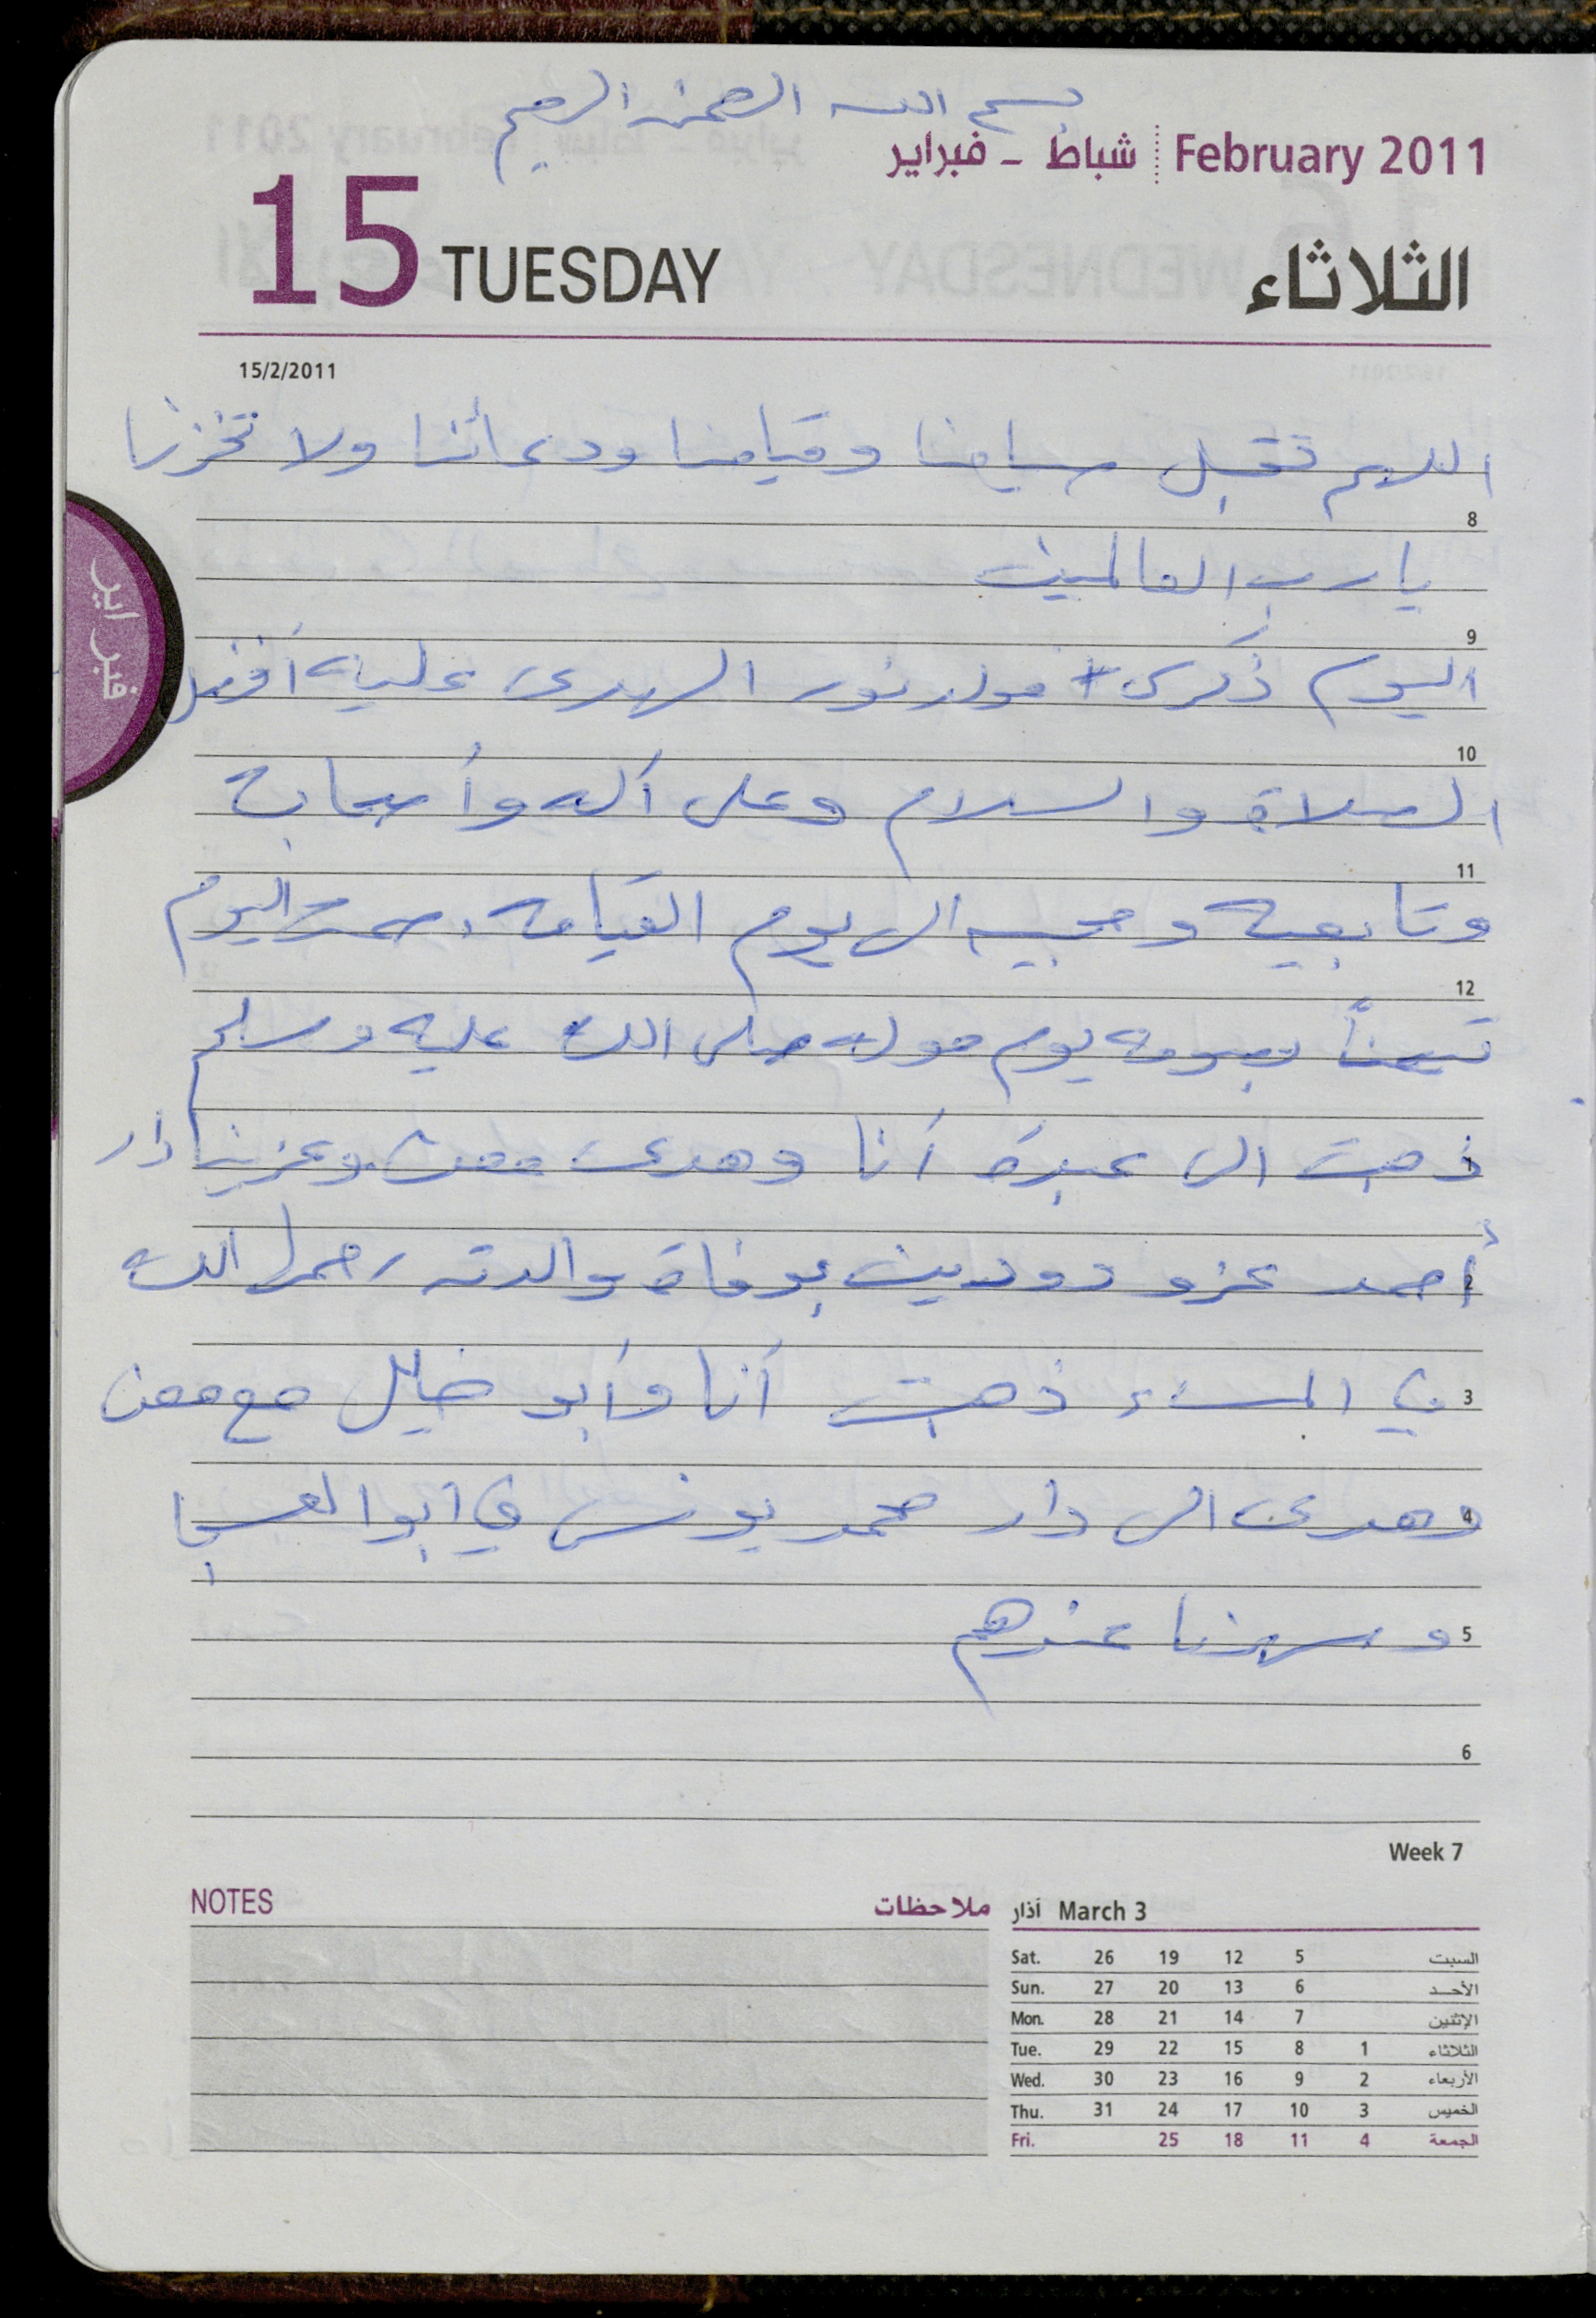 بسم الله الرحمن الرحيم
February 2011 شباط - فبراير
15 TUESDAY الثلاثاء
15/2/2011
اللهم تقبل صيامنا وقيامنا ودعائنا ولا تخزنا
8
يا رب العالمين
9
اليوم ذكرى مولد نور الهدى عليه أفضل
10
الصلاة والسلام وعلى آله وأصحابه
11
وتابعيه ومحبيه الى يوم القيامه. صمت اليوم
12
تيمناً بصومه يوم مولده صلى الله عليه وسلم
1
ذهبت الى عبدة أنا وهدى ومعن وعزينا دار
2
أحمد عزو دودين بوفاة والدته رحمها الله
3 في المساء ذهبت أنا وأبو خليل مع معن
4
وهدى الى دار محمد يونس في ابو العسجا
5 وسهرنا عندهم
6
Week 7
فبراير
NOTES ملاحظات
آذار March 3
Sat. 26 19 12 5 السبت
Sun. 27 20 13 6 الأحد
Mon. 28 21 14 7 الإثنين
Tue. 29 22 15 8 1 الثلاثاء
Wed. 30 23 16 9 2 الأربعاء
Thu. 31 24 17 10 3 الخميس
Fri. 25 18 11 4 الجمعة